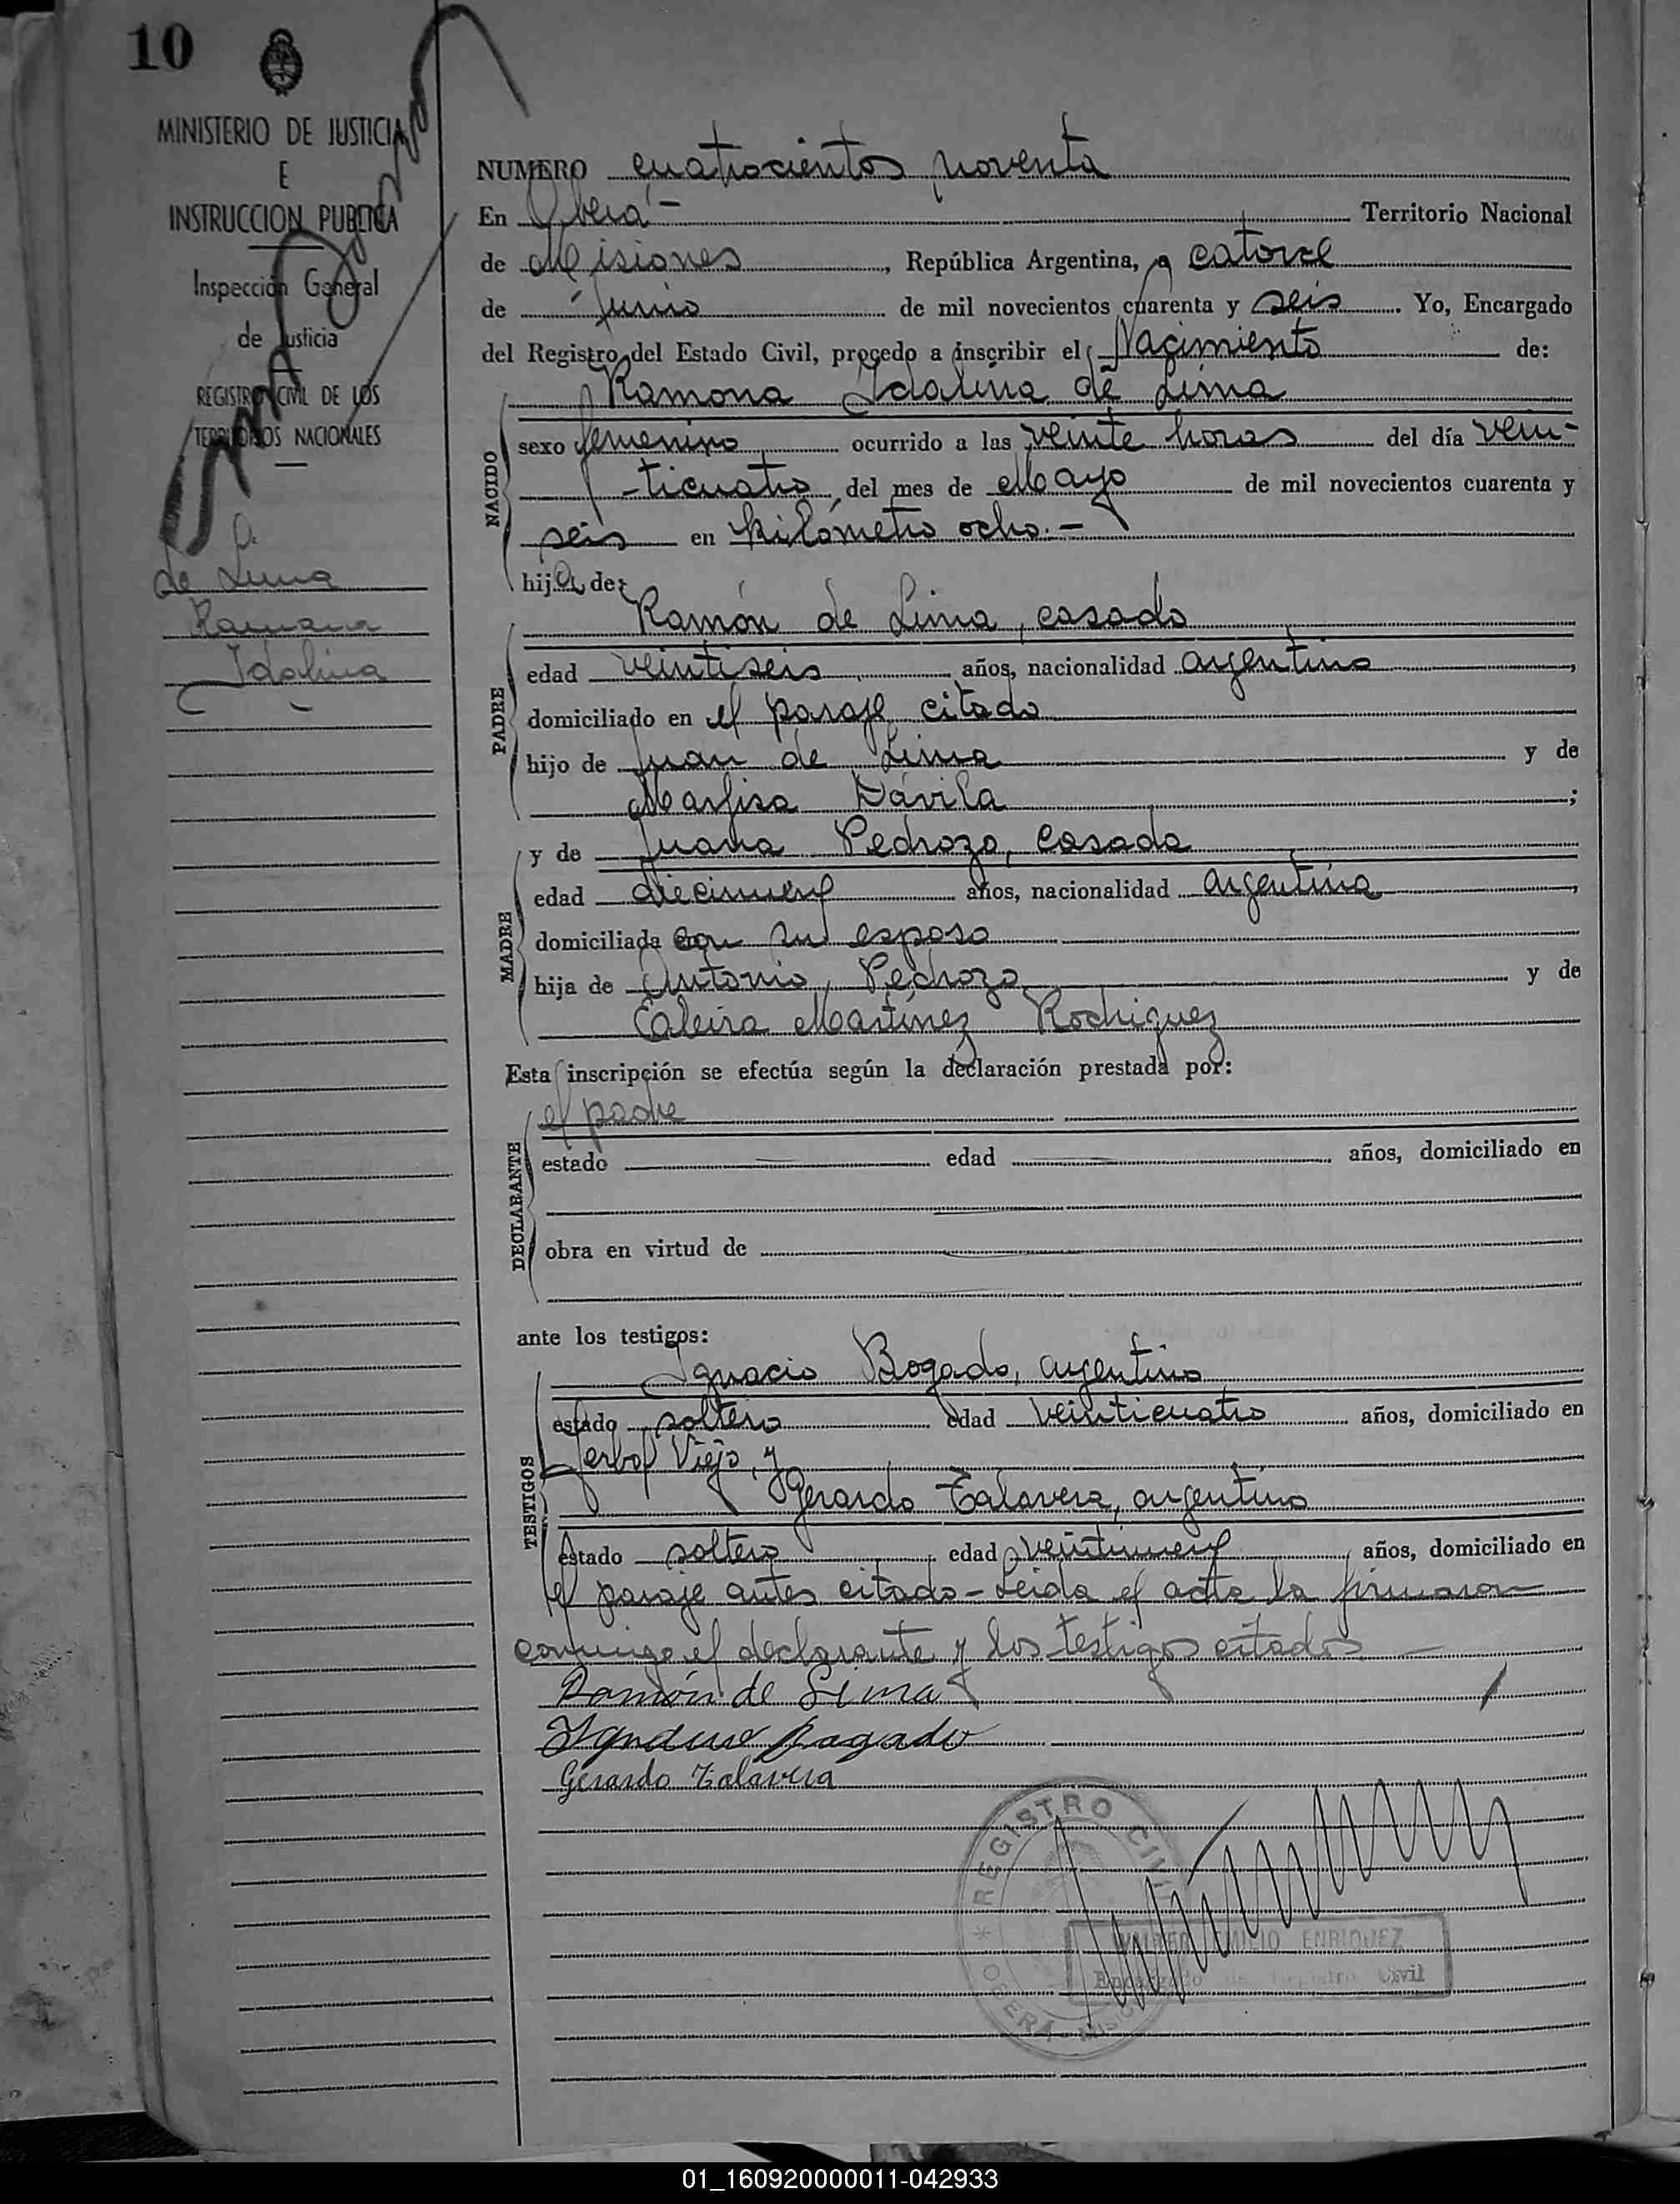 10
MINISTERIO DE JUSTICIA
E
INSTRUCCION PUBLICA
Inspección General
de Justicia
REGISTRO CIVIL DE LOS
TERRITORIOS NACIONALES
de Lima
Ramona
Idalina
NUMERO cuatrocientos noventa
En Oberá - Territorio Nacional
de Misiones, República Argentina, a catorce
de Junio de mil novecientos cuarenta y seis. Yo, Encargado
del Registro del Estado Civil, procedo a inscribir el Nacimiento de:
Ramona Idalina de Lima
NACIDO
sexo femenino ocurrido a las veinte horas del día vein-
-ticuatro del mes de Mayo de mil novecientos cuarenta y
seis en kilómetro ocho.-
hija de:
PADRE
Ramón de Lima, casado
edad veintiseis años, nacionalidad argentino,
domiciliado en el paraje citado
hijo de Juan de Lima y de
Marfisa Dávila;
MADRE
y de Juana Pedrozo, casada
edad diecinueve años, nacionalidad argentina,
domiciliada con su esposo
hija de Antonio Pedrozo y de
Martínez Rodriguez
Esta inscripción se efectúa según la declaración prestada por:
DECLARANTE
el padre
estado edad años, domiciliado en
obra en virtud de
ante los testigos:
TESTIGOS
Ignacio Bogado, argentino
estado soltero edad veinticuatro años, domiciliado en
Yerbal Viejo, y
Gerardo Talavera, argentino
estado soltero edad veintinueve años, domiciliado en
el paraje antes citado - Leida el acta la firmaron
conmigo el declarante y los testigos citados.-
Ramón de Lima
Ignacio Bogado
Gerardo Talavera
REGISTRO CIVIL
* OBERA - Misiones
WALTER EMILIO ENRIQUEZ
Encargado de Registro Civil
01_160920000011-042933